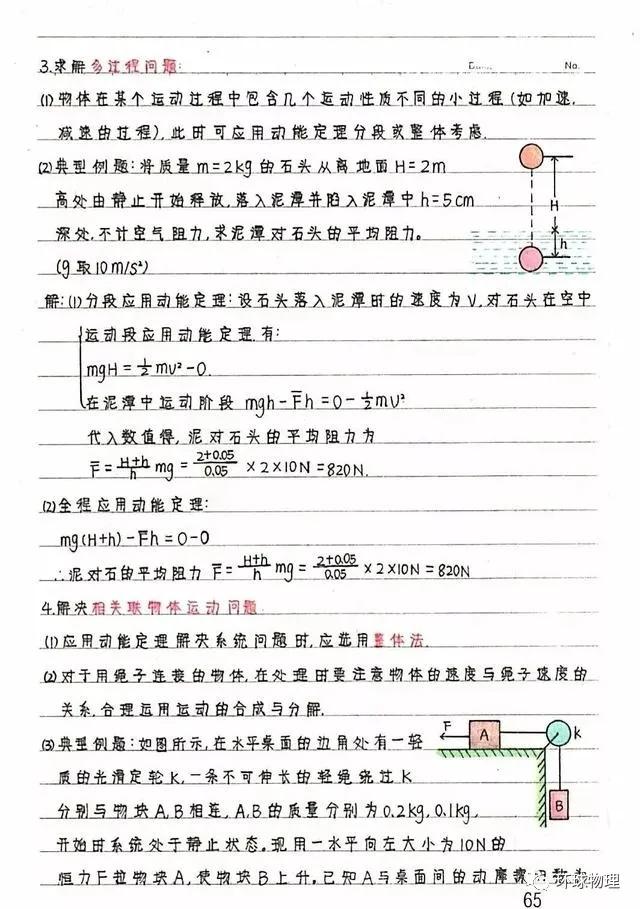 3.求解多过程问题:
No.
(1)物体在某个运动过程中包含几个运动性质不同的小过程(如加速,
减速的过程),此时可应用动能定理分段或整体考虑.
(2)典型例题:将质量m=2kg的石头从离地面H=2m
高处由静止开始释放,落入泥潭并陷入泥潭中h=5cm
深处,不计空气阻力,求泥潭对石头的平均阻力。
(g取10m/s²)
H
h
解:(1)分段应用动能定理:设石头落入泥潭时的速度为V,对石头在空中
运动段应用动能定理有:
mgH=½mv²-0.
在泥潭中运动阶段 mgh-F̄h=0-½mv²
代入数值得,泥对石头的平均阻力为
F̄=(H+h)/h mg=(2+0.05)/0.05×2×10N=820N.
(2)全程应用动能定理:
mg(H+h)-F̄h=0-0
∴泥对石的平均阻力 F̄=(H+h)/h mg=(2+0.05)/0.05×2×10N=820N
4.解决相关联物体运动问题
(1)应用动能定理解决系统问题时,应选用整体法.
(2)对于用绳子连接的物体,在处理时要注意物体的速度与绳子速度的
关系,合理运用运动的合成与分解.
(3)典型例题:如图所示,在水平桌面的边角处有一轻
质的光滑定轮K,一条不可伸长的轻绳绕过K
分别与物块A,B相连,A,B的质量分别为0.2kg,0.1kg,
开始时系统处于静止状态。现用一水平向左大小为10N的
恒力F拉物块A,使物块B上升。已知A与桌面间的动摩擦
F
A
K
B
环球物理
65